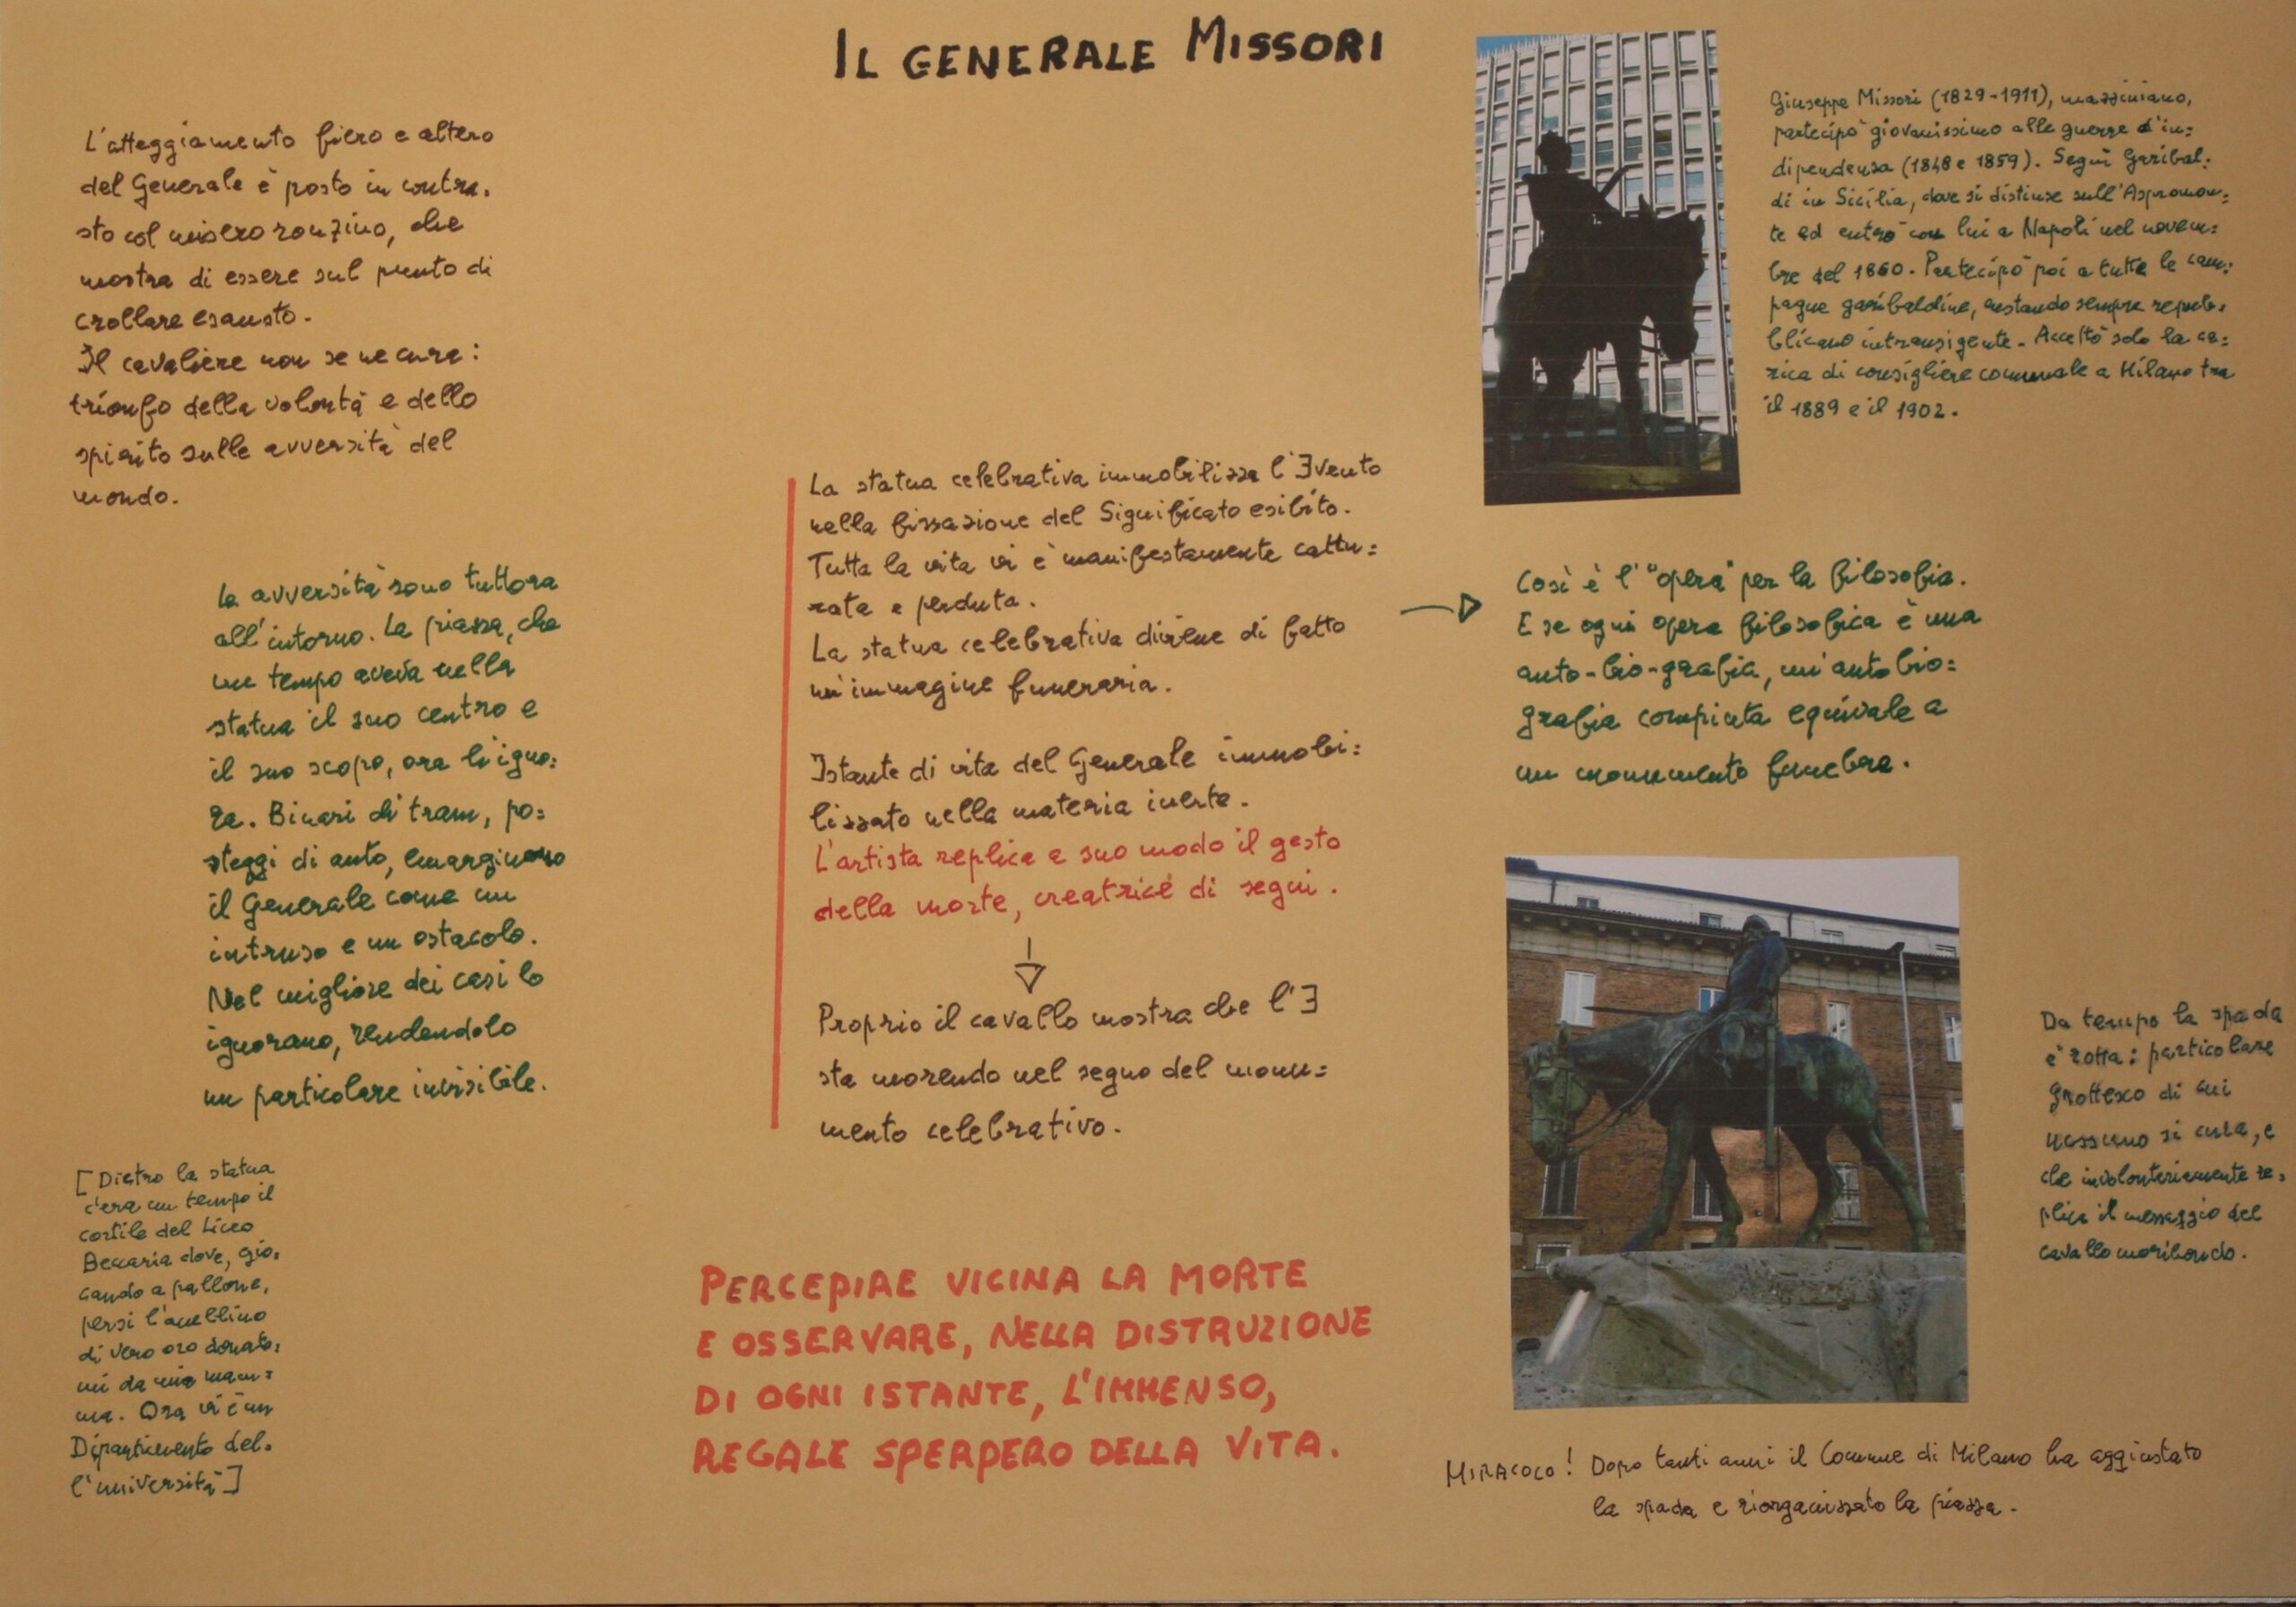 IL GENERALE MISSORI
L'atteggiamento fiero e altero
del Generale è posto in contra-
sto col misero ronzino, che
mostra di essere sul punto di
crollare esausto.
Il cavaliere non se ne cura:
trionfo della volontà e dello
spirito sulle avversità del
mondo.
Le avversità sono tuttora
all'intorno. La piazza, che
un tempo aveva nella
statua il suo centro e
il suo scopo, ora lo igno=
ra. Binari di tram, po=
steggi di auto, emarginano
il Generale come un
intruso e un ostacolo.
Nel migliore dei casi lo
ignorano, rendendolo
un particolare invisibile.
[Dietro la statua
c'era un tempo il
cortile del Liceo
Beccaria dove, gio=
cando a pallone,
persi l'anellino
di vero oro donato=
mi da mia mam=
ma. Ora vi è un
Dipartimento del=
l'università]
La statua celebrativa immobilizza l'Evento
nella fissazione del Significato esibito.
Tutta la vita vi è manifestamente cattu=
rata e perduta.
La statua celebrativa diviene di fatto
un'immagine funeraria.
Istante di vita del Generale immobi=
lizzato nella materia inerte.
L'artista replica a suo modo il gesto
della morte, creatrice di segni.
Proprio il cavallo mostra che l'E
sta morendo nel segno del monu=
mento celebrativo.
PERCEPIRE VICINA LA MORTE
E OSSERVARE, NELLA DISTRUZIONE
DI OGNI ISTANTE, L'IMMENSO,
REGALE SPERPERO DELLA VITA.
Giuseppe Missori (1829-1911), mazziniano,
partecipò giovanissimo alle guerre d'in=
dipendenza (1848 e 1859). Seguì Garibal=
di in Sicilia, dove si distinse sull'Aspromon=
te ed entrò con lui a Napoli nel novem=
bre del 1860. Partecipò poi a tutte le cam=
pagne garibaldine, restando sempre repub=
blicano intransigente. Accettò solo la ca=
rica di consigliere comunale a Milano tra
il 1889 e il 1902.
Così è l'"opera" per la filosofia.
E se ogni opera filosofica è una
auto-bio-grafia, un'autobio=
grafia compiuta equivale a
un monumento funebre.
Da tempo la spada
è rotta: particolare
grottesco di cui
nessuno si cura, e
che involontariamente re=
plica il messaggio del
cavallo moribondo.
MIRACOLO! Dopo tanti anni il Comune di Milano ha aggiustato
la spada e riorganizzato la piazza.